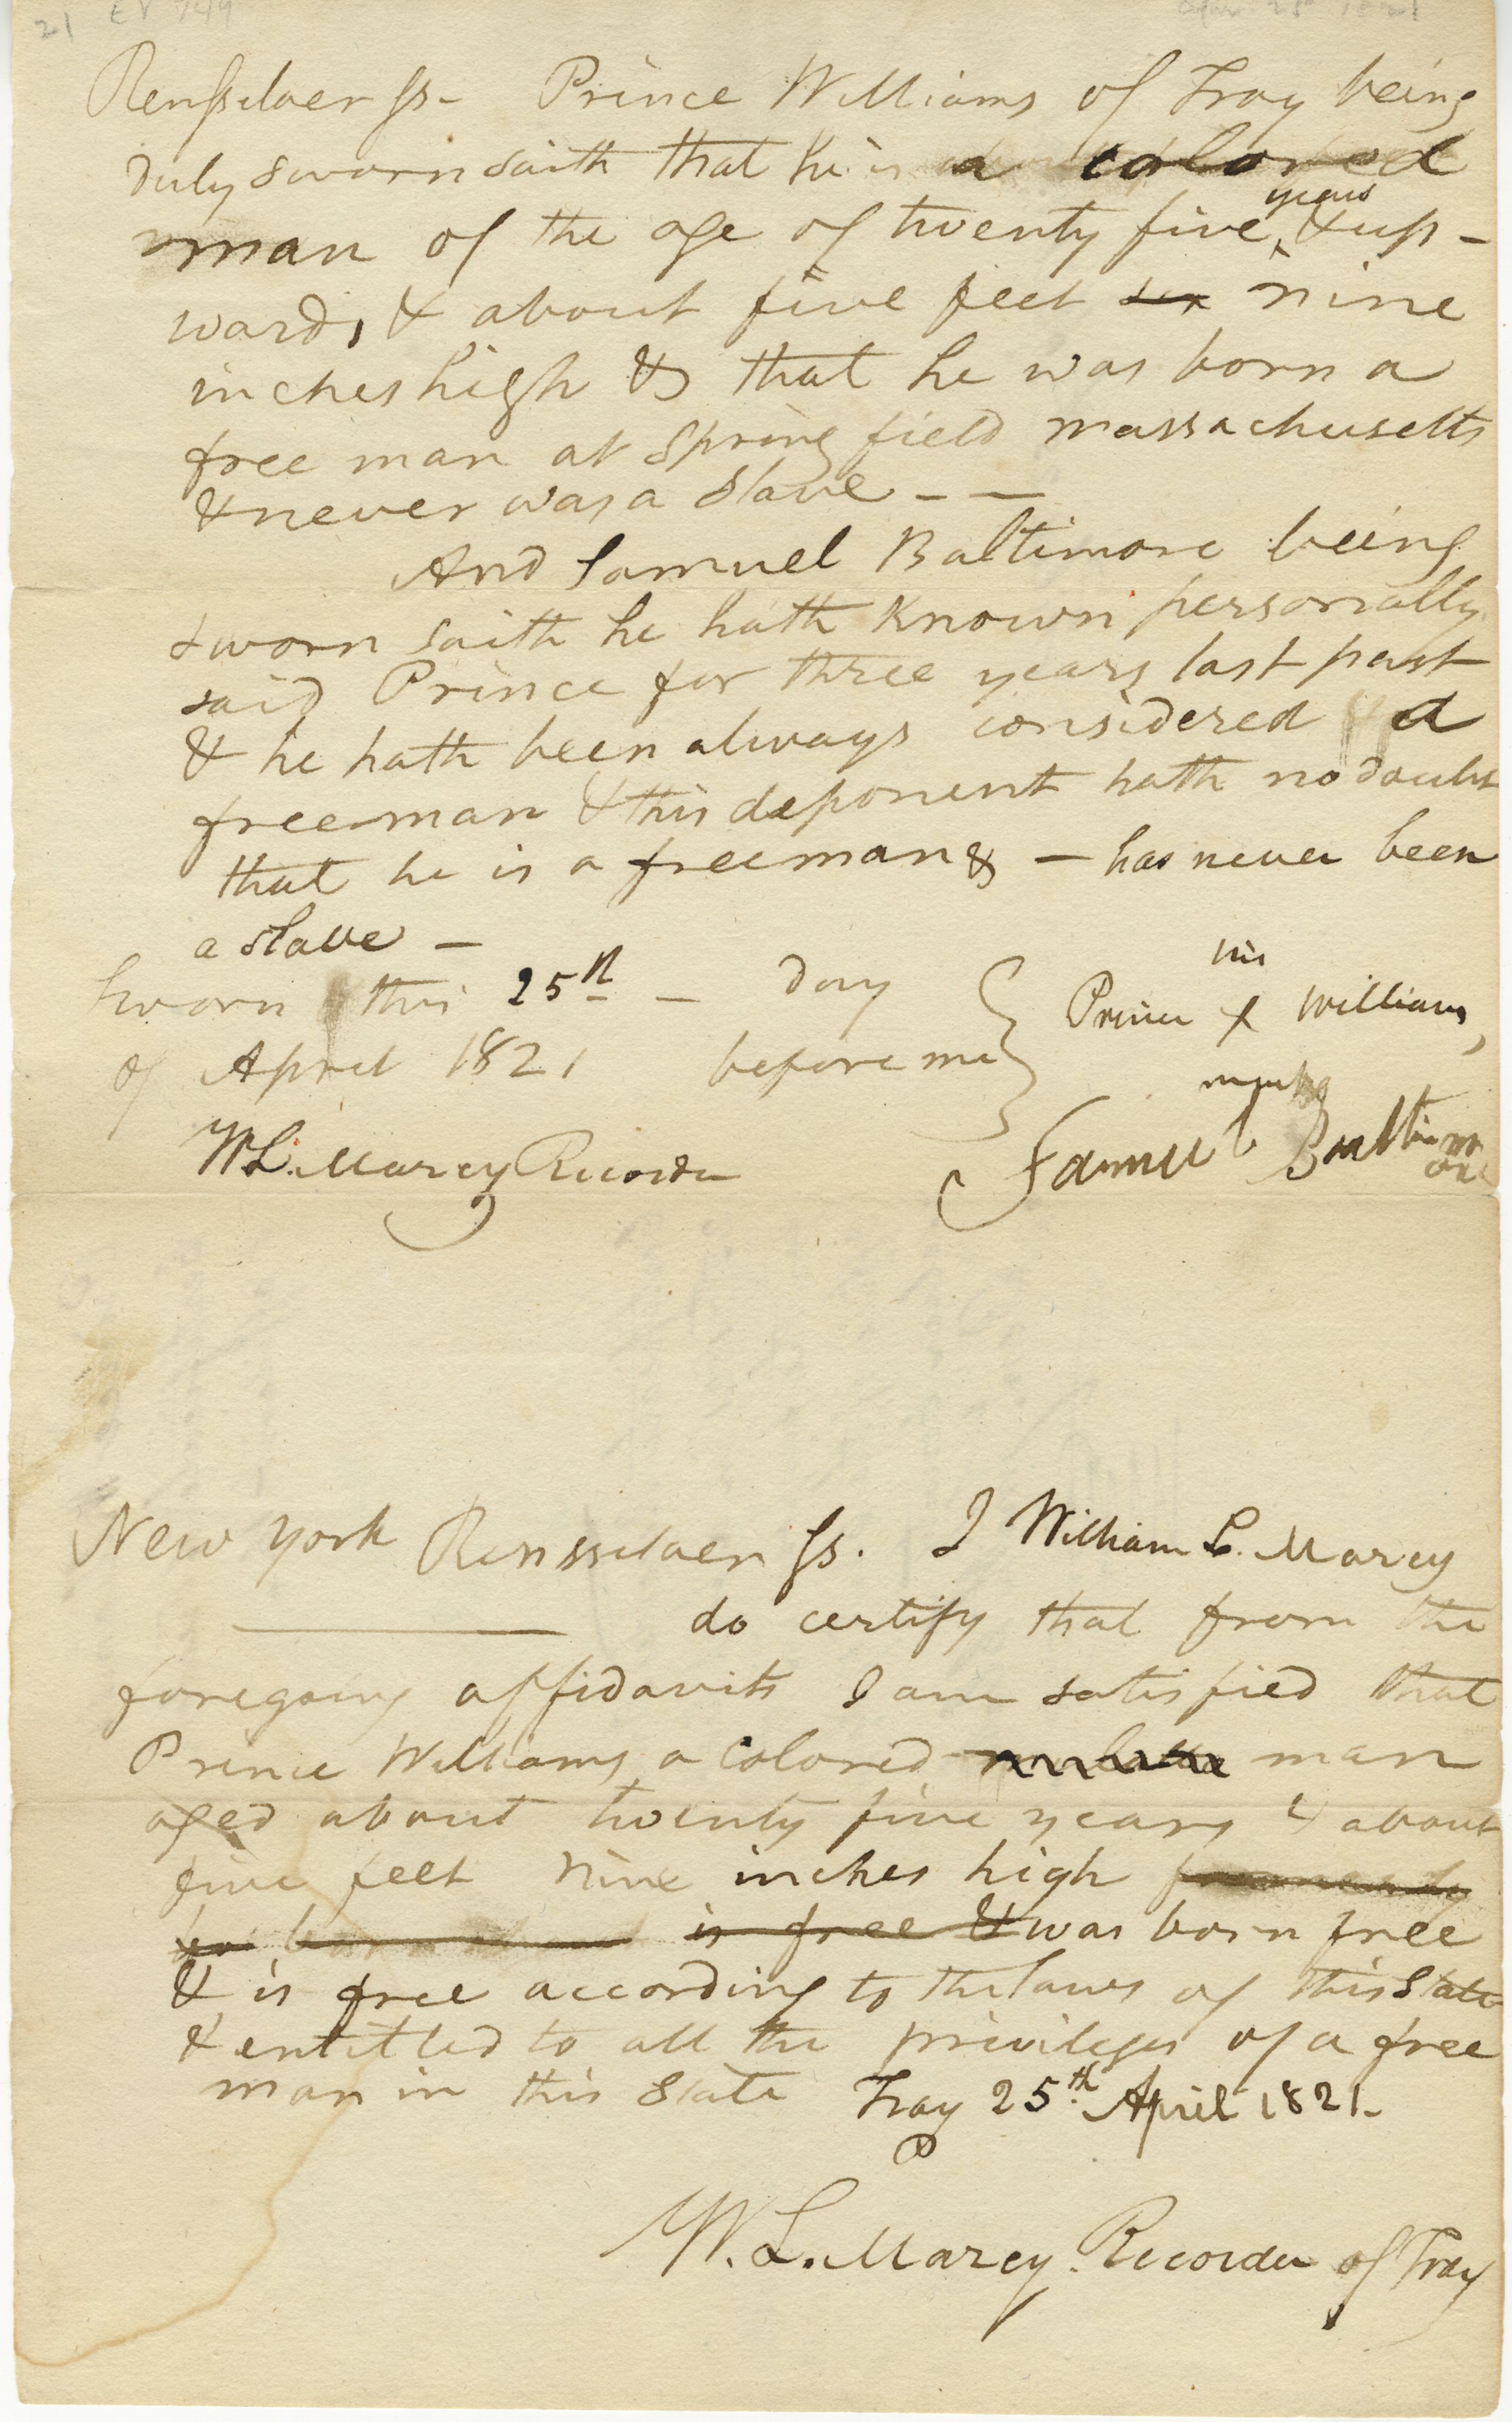 21 EV 749
Apr. 25 1821
Rensselaer ss- Prince Williams of Troy being
duly sworn saith that he is a colored
man of the age of twenty five years & up-
wards & about five feet six nine
inches high & that he was born a
free man at Springfield massachusetts
& never was a slave - -
And Samuel Baltimore being
sworn saith he hath known personally
said Prince for three years last past
& he hath been always considered a
freeman & this deponent hath no doubt
that he is a freeman & - has never been
a slave -
Sworn this 25th - day
of April 1821 before me
his
Prince x Williams
mark
W L. Marcy Recorder
Samuel Baltimore
New York Rensselaer ss. I William L. Marcy
do certify that from the
foregoing affidavits I am satisfied that
Prince Williams a colored man
aged about twenty five years & about
five feet nine inches high
is free & was born free
& is free according to the laws of this State
& entitled to all the privileges of a free
man in this State Troy 25th April 1821-
W. L. Marcy. Recorder of Troy